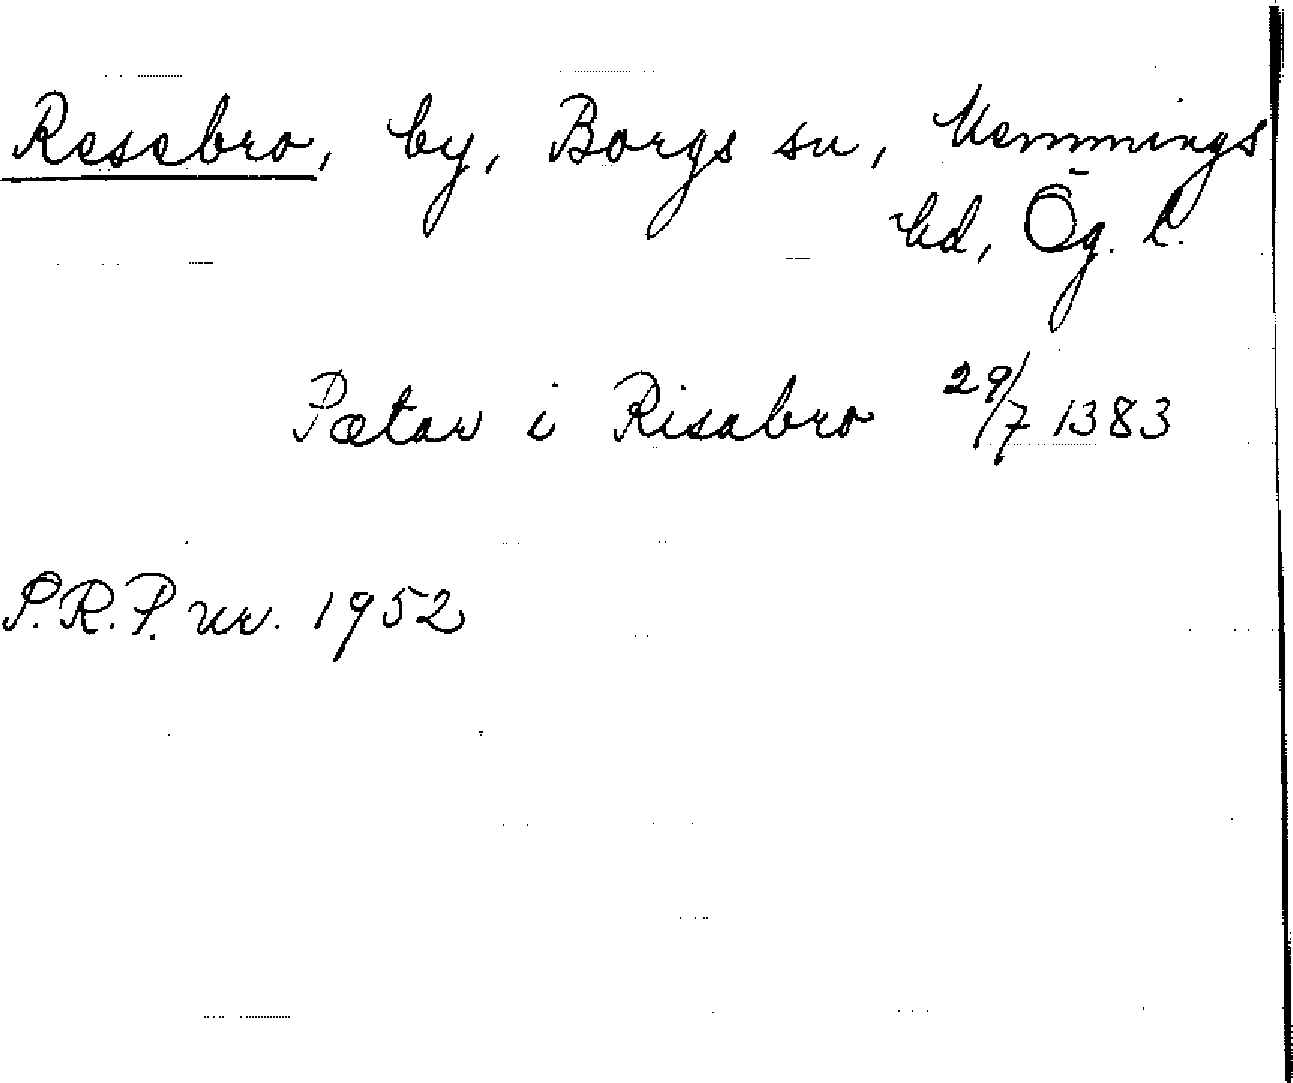 Resebro, by, Borgs sn, Memmings
hd, Ög. l.
Pætar i Risabro 29/7 1383
S.R.P. nr. 1952